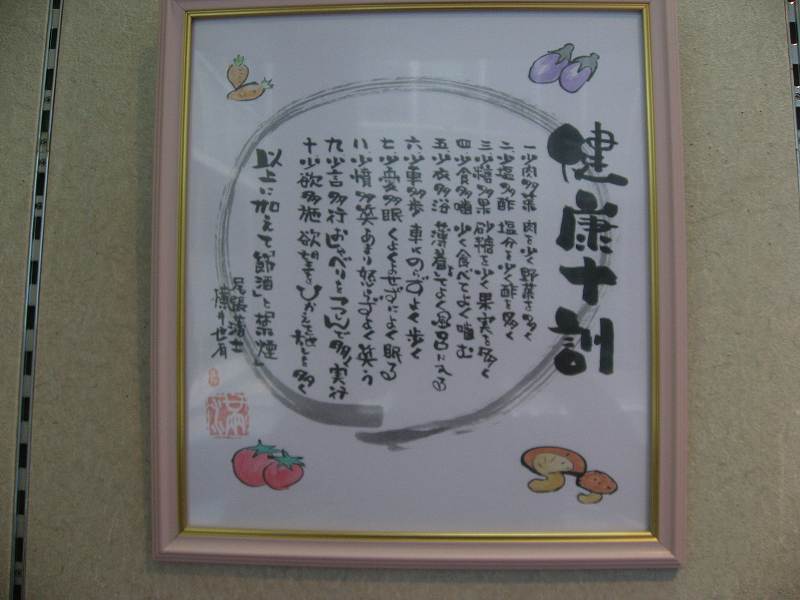 健康十訓
一、少肉多菜 肉を少く野菜を多く
二、少塩多酢 塩分を少く酢を多く
三、少糖多果 砂糖を少く果実を多く
四、少食多噛 少く食べてよく噛む
五、少衣多浴 薄着してよく風呂に入る
六、少車多歩 車にのらずよく歩く
七、少憂多眠 くよくよせずによく眠る
八、少憤多笑 あまり怒らずよく笑う
九、少言多行 おしゃべりをつつしんで多く実行
十、少欲多施 欲望をひかえて施しを多く
以上に加えて「節酒」と「禁煙」
尾張藩士
横井也有